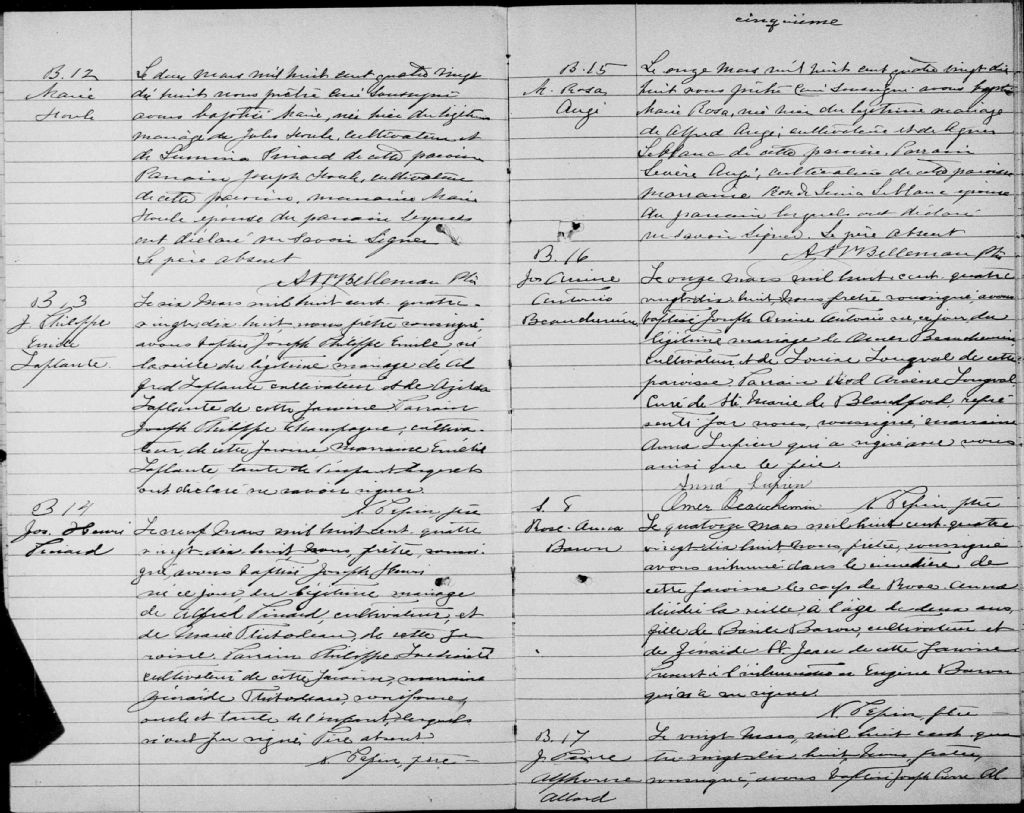 B.12
Marie
Houle
Le deux Mars mil huit cent quatre vingt
dix huit nous prêtre curé soussigné
avons baptisé Marie, née hier du légitime
mariage de Jules Houle, cultivateur et
de Lumina Pinard de cette paroisse
Parrain Joseph Houle, cultivateur
de cette paroisse, marraine Marie
Houle épouse du parrain lesquels
ont déclaré ne savoir signer
Le père absent
Belleman Ptre
B 13
J Philippe
Emile
Laplante
Le six Mars mil huit cent quatre-
vingt-dix huit, nous prêtre soussigné,
avons baptisé Joseph Philippe Emile, né
la veille du légitime mariage de Al
fred Laplante cultivateur et de
Laplante de cette paroisse Parrain
Joseph Philippe Champagne, cultiva-
teur de cette paroisse marraine
Laplante tante de l'enfant lesquels
ont déclaré ne savoir signer.
N. Pepin, ptre
B 14
Jos. Henri
Pinard
Le neuf Mars mil huit cent quatre
vingt dix huit, nous, prêtre, soussi-
gné, avons baptisé Joseph Henri
né ce jour du légitime mariage
de Alfred Pinard, cultivateur, et
de Marie de cette pa-
roisse Parrain Philippe
cultivateur de cette paroisse, marraine
Zénaïde
oncle et tante de l'enfant, lesquels
n'ont pu signer. Père absent
N. Pepin, ptre
cinquième
B.15
M. Rosa
Augé
Le onze Mars mil huit cent quatre vingt dix
huit nous prêtre curé soussigné avons baptisé
Marie Rosa, née hier du légitime mariage
de Alfred Augé, cultivateur et de Agnes
Leblanc de cette paroisse. Parrain
Sévère Augé, cultivateur de cette paroisse
marraine Leblanc épouse
du parrain lesquels ont déclaré
ne savoir signer. Le père absent
Belleman Ptre
B. 16
Jos Arsène
Antonio
Beauchemin
Le onze mars mil huit-cent quatre
vingt-dix huit nous prêtre soussigné avons
baptisé Joseph Arsène Antonio né ce jour du
légitime mariage de Omer Beauchemin
cultivateur et de Louise Longval de cette
paroisse Parrain Arsène Longval
Curé de Ste Marie de Blandford, repré
senté par nous, soussigné, marraine
Anna Lupien qui a signé avec nous
ainsi que le père.
Anna Lupien
Omer Beauchemin N. Pepin ptre
S. 5
Rose-Anna
Baron
Le quatorze mars mil huit cent-quatre
vingt-dix huit nous prêtre, soussigné
avons inhumé dans le cimetière de
cette paroisse le corps de Rose Anna
décédée la veille à l'âge de deux ans,
fille de Basile Baron, cultivateur et
de Zénaïde St Jean de cette paroisse
Présent à l'inhumation Eugène Baron
qui n'a su signer.
N. Pepin, ptre
B. 17
J. Pierre
Alphonse
Allard
Le vingt Mars, mil huit cent qua
tre vingt dix huit, nous, prêtre,
soussigné, avons baptisé Joseph Pierre Al